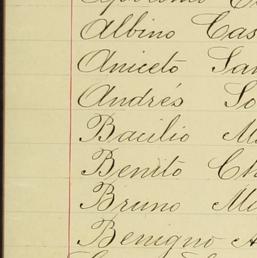 Albino Cas
Aniceto San
Andrés So
Bacilio M
Benito Ch
Bruno Mo
Benigno A